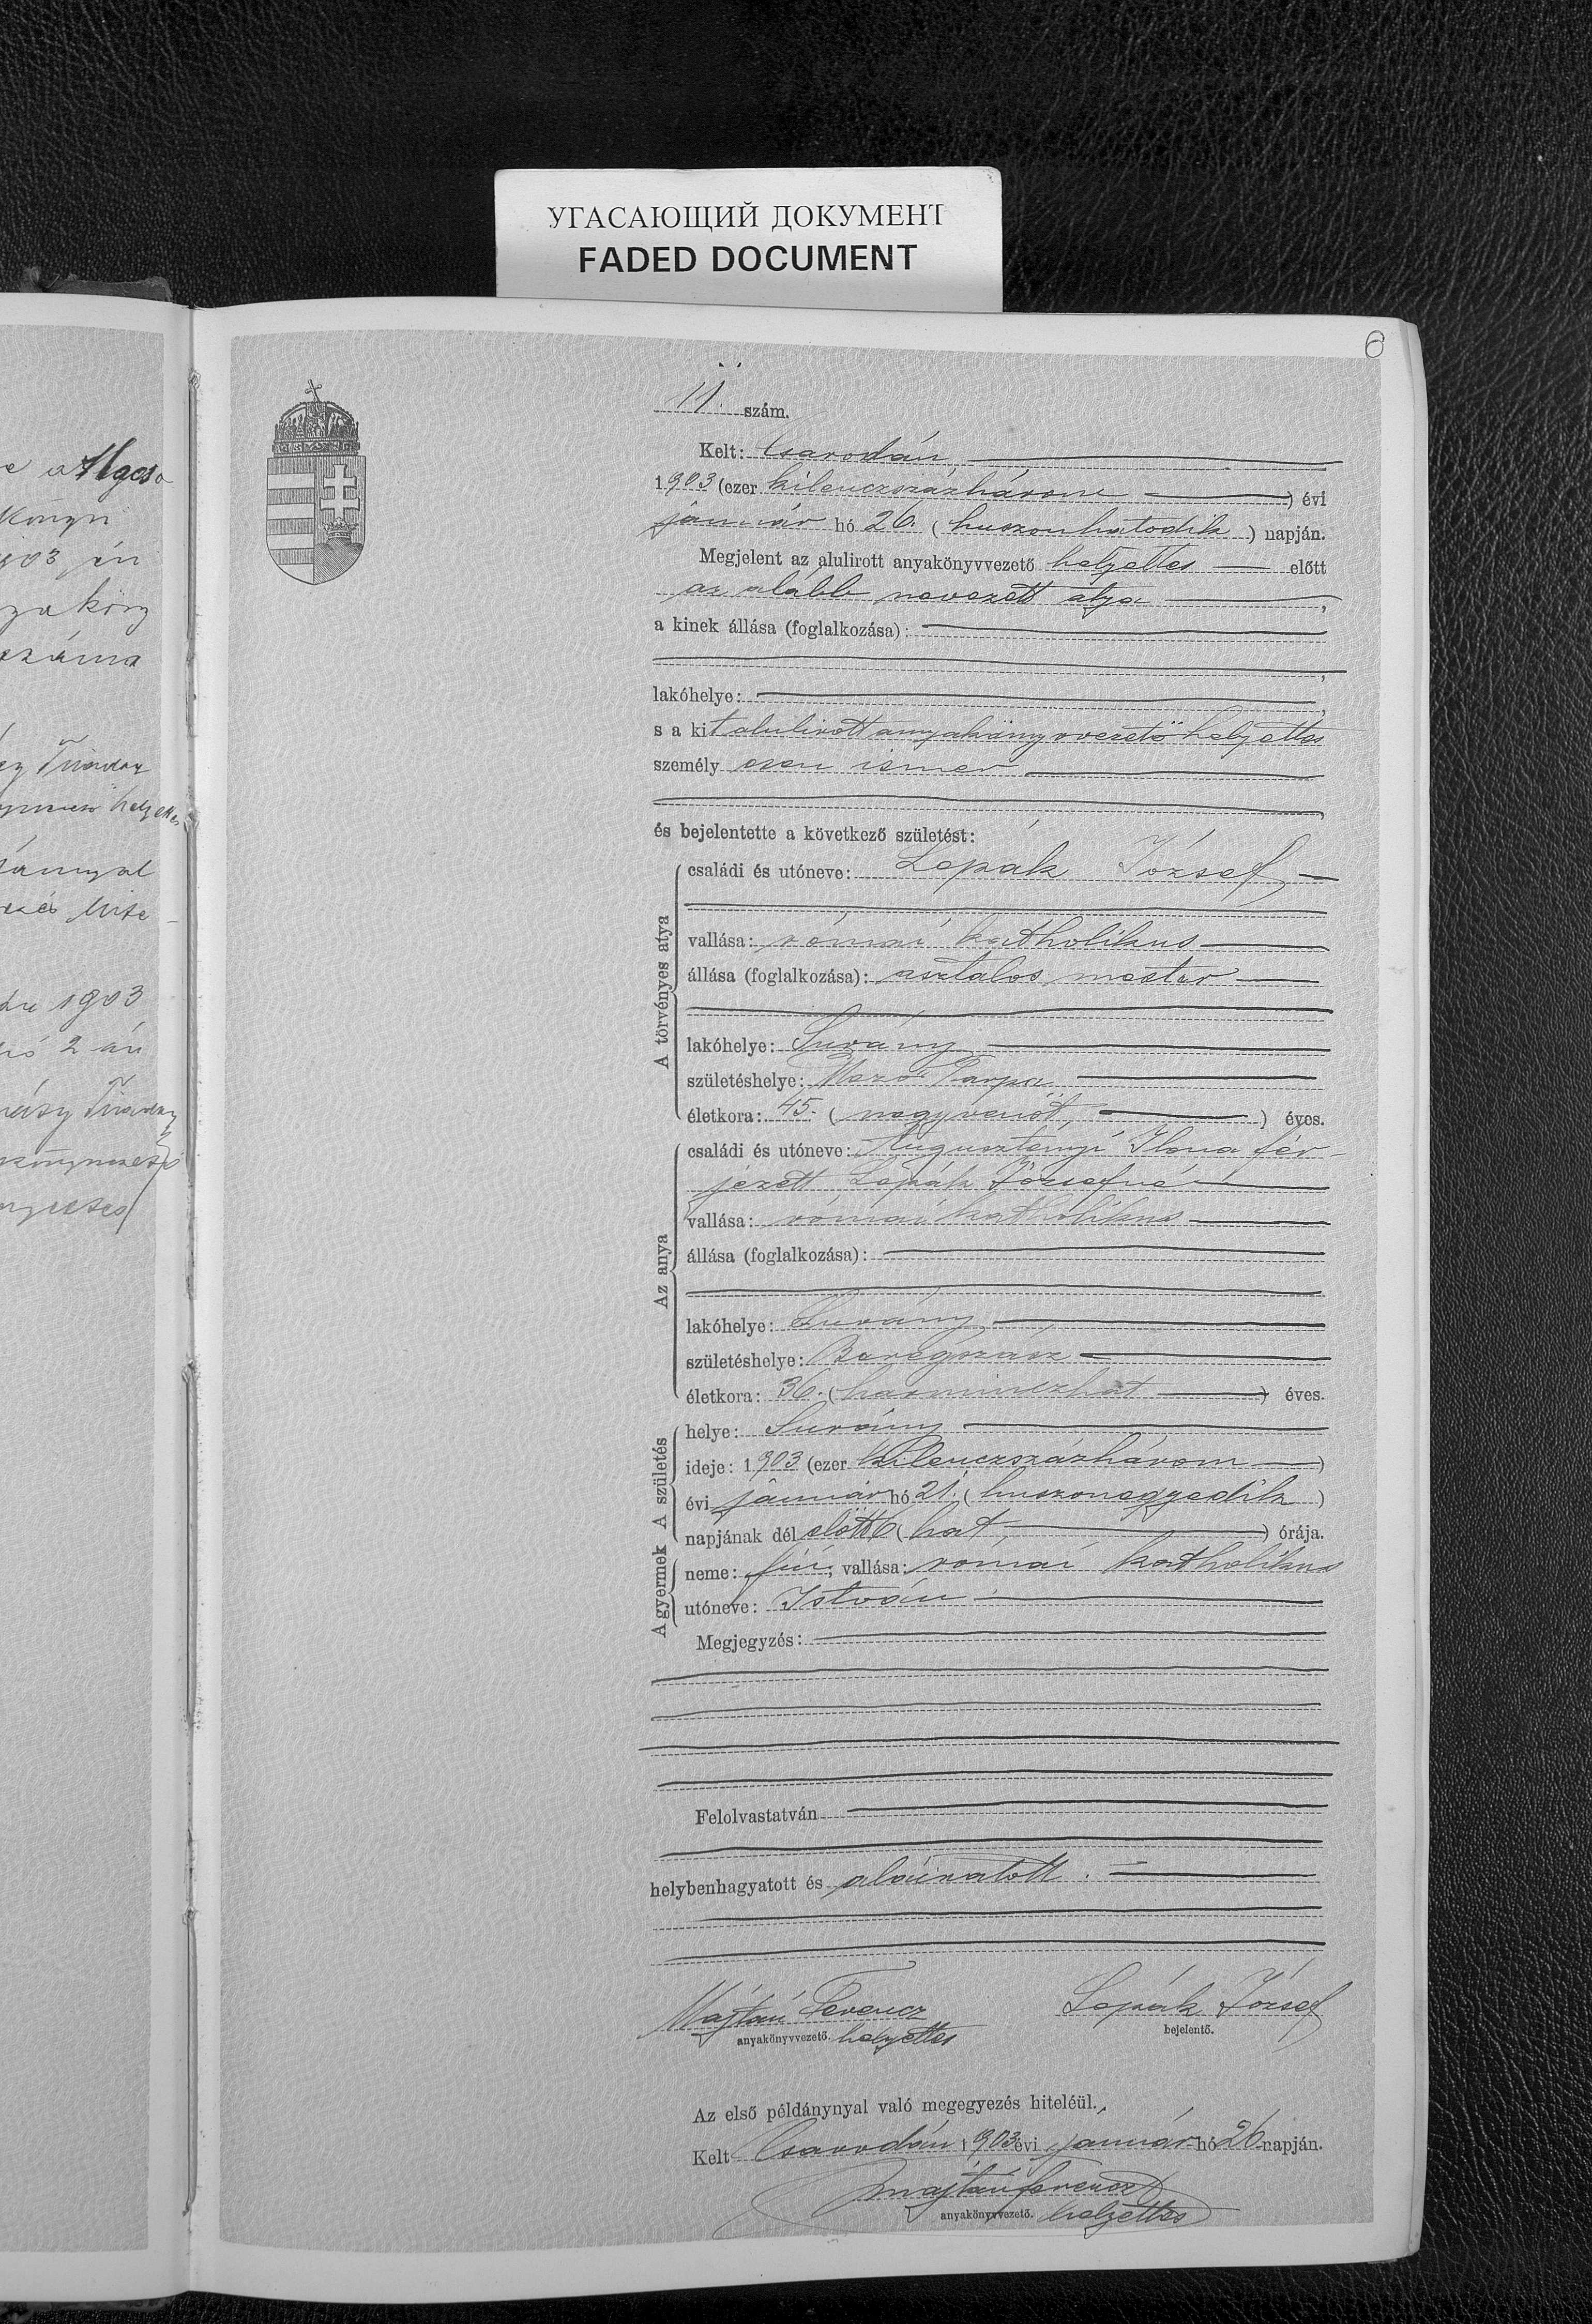 УГАСАЮЩИЙ ДОКУМЕНТ
FADED DOCUMENT
6
11. szám.
Kelt: Csarodán
1903 (ezer kilenczszázhárom) évi
január hó 26. (huszonhatodik) napján.
Megjelent az alulirott anyakönyvvezető helyettes előtt
az alább nevezett atya,
a kinek állása (foglalkozása):
lakóhelye:
s a kit alulirott anyakönyvvezető helyettes
személyesen ismer
és bejelentette a következő születést:
A törvényes atya
családi és utóneve: Lepák József
vallása: római katholikus
állása (foglalkozása): asztalos mester
lakóhelye: Surány
születéshelye: Mező Tarpa
életkora: 45. (negyvenöt) éves.
Az anya
családi és utóneve: Augusztinyi Ilona fér-
jezett Lepák Józsefné
vallása: római katholikus
állása (foglalkozása):
lakóhelye: Surány
születéshelye: Beregszász
életkora: 36. (harminczhat) éves.
A születés
helye: Surány
ideje: 1903 (ezer kilenczszázhárom)
évi január hó 21. (huszonegyedik)
napjának dél előtt 6 (hat) órája.
A gyermek
neme: fiú, vallása: római katholikus
utóneve: István
Megjegyzés:
Felolvastatván
helybenhagyatott és aláiratott.
Majtán Ferencz
anyakönyvvezető. helyettes
Lepák József
bejelentő.
Az első példánynyal való megegyezés hiteléül.
Kelt Csarodán 1903 évi január hó 26 napján.
Majtán Ferencz
anyakönyvvezető. helyettes
1903
2 án